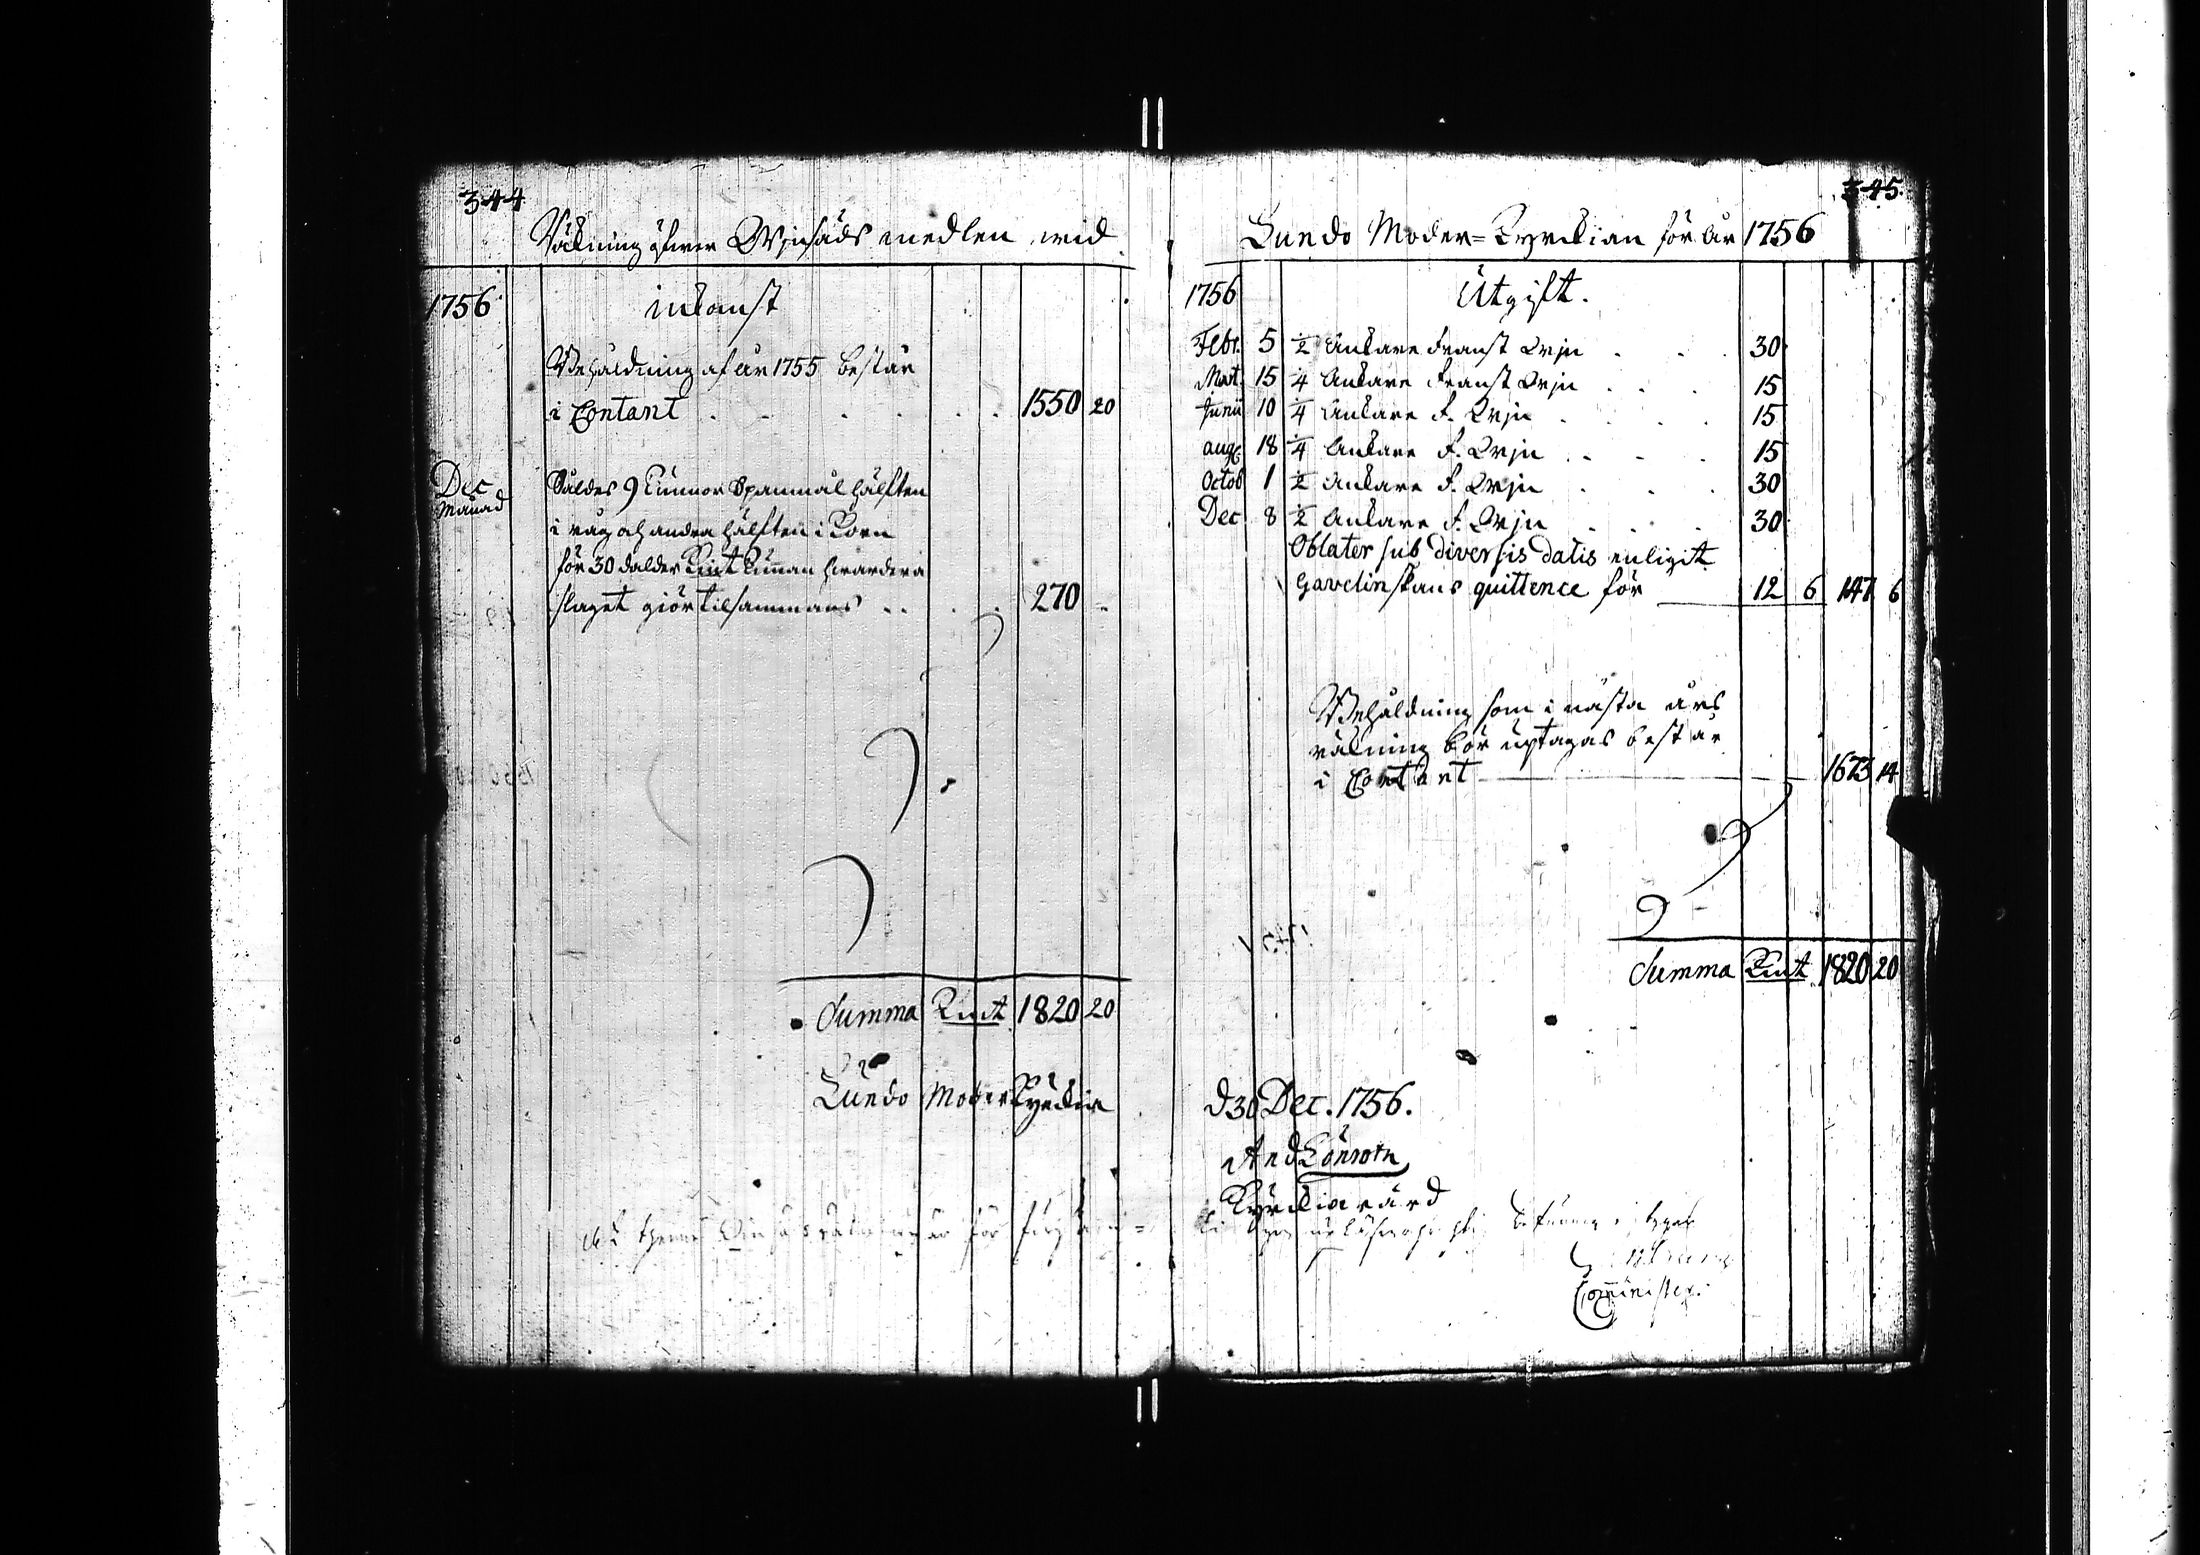 344
Räkning öfwer Winsäds medlen wid
1756
inkomst
Behåldning af år 1755 består
i Contant . . . . . . 1550 20
Dec
Månad
Såldes 9 Tunnor Spanmål hälften
i råg och andra hälften i Korn
för 30 daler Kmt Tunnan hwardera
slaget giör tilsammans . . . . 270 -
Summa Kmt 1820 20
Lundo Moderkyrkia
345
Lundo Moder=Kyrkian för år 1756
1756
Utgift.
Febr. 5 1/2 Ankare Franst Win . . . 30
Mart. 15 1/4 Ankare Franst Win . . . 15
Junii 10 1/4 Ankare F. Win . . . . 15
aug. 18 1/4 Ankare F. Win . . . 15
Octob 1 1/2 Ankare F. Win . . . 30
Dec. 8 1/2 Ankare F. Win . . . 30
Oblater sub diversis datis enligit
Gavelinskans quittence för 12 6 147 6
Behåldning som i nästa års
räkning bör uptagas består
i Contant 1673 14
Summa Kmt 1820 20
d 30 Dec. 1756.
And Lönroth
Kyrkiovärd
Comminister.